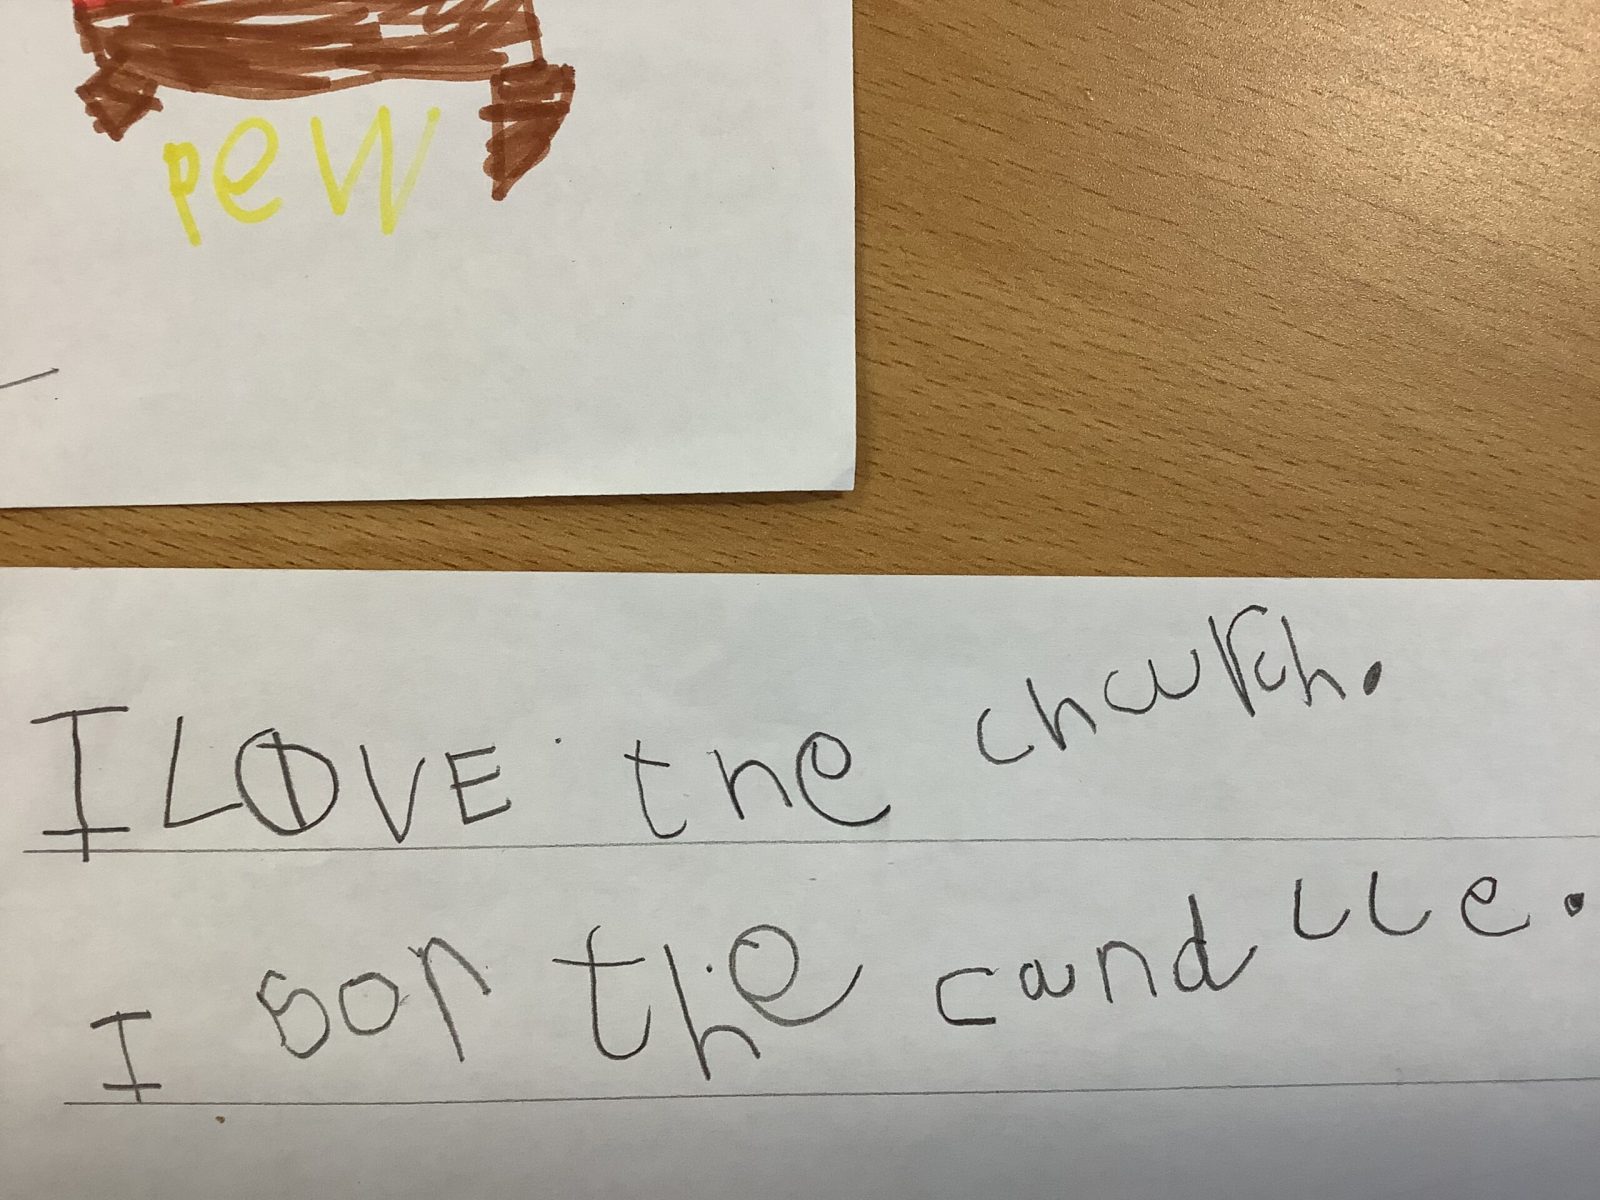 pew
I LOVE the church.
I sor the candlle.